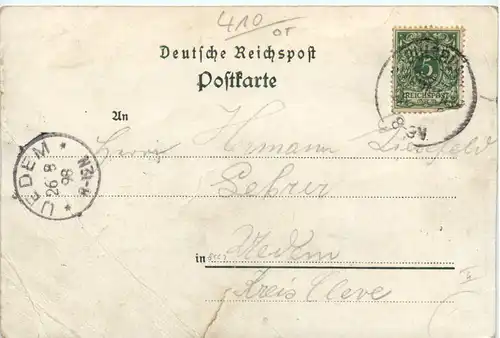 410
OT
Deutsche Reichspost
Postkarte
5
REICHSPOST
An
Herrn Hrmann
Lehrer
in Uedem
Kreis Cleve
UEDEM
26 8
98
8-9N